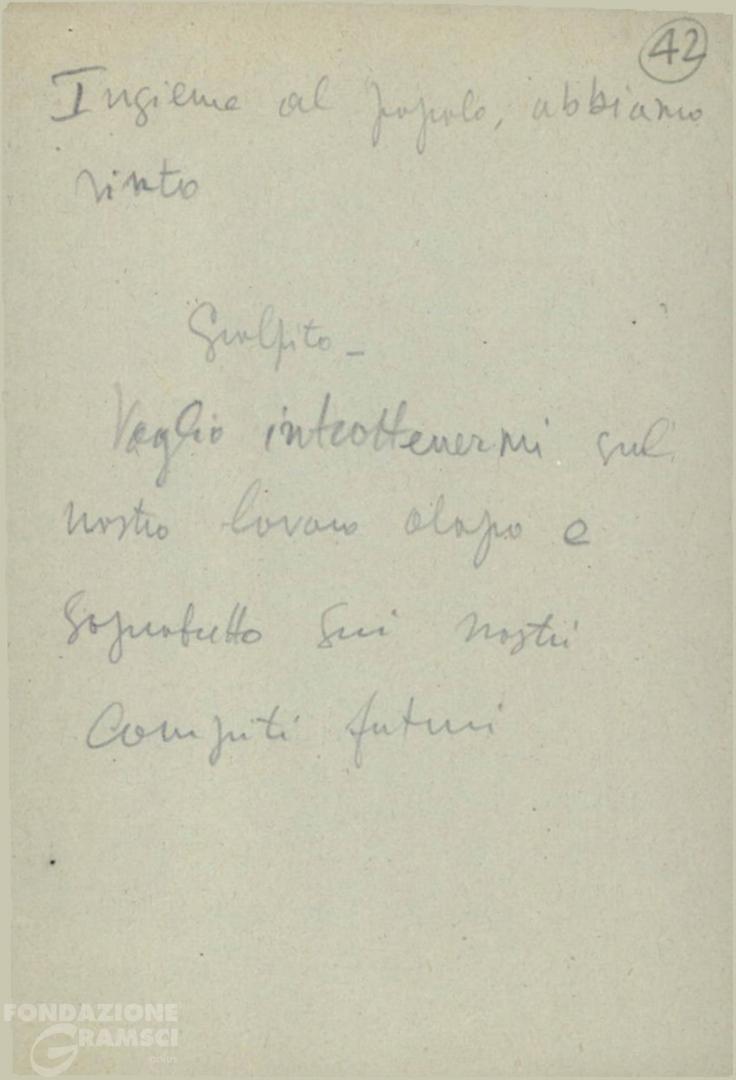 42
Insieme al popolo, abbiamo
vinto
Scolpito –
Voglio intrattenermi sul
nostro lavoro dopo e
Soprattutto sui nostri
Compiti futuri
FONDAZIONE
GRAMSCI
onlus